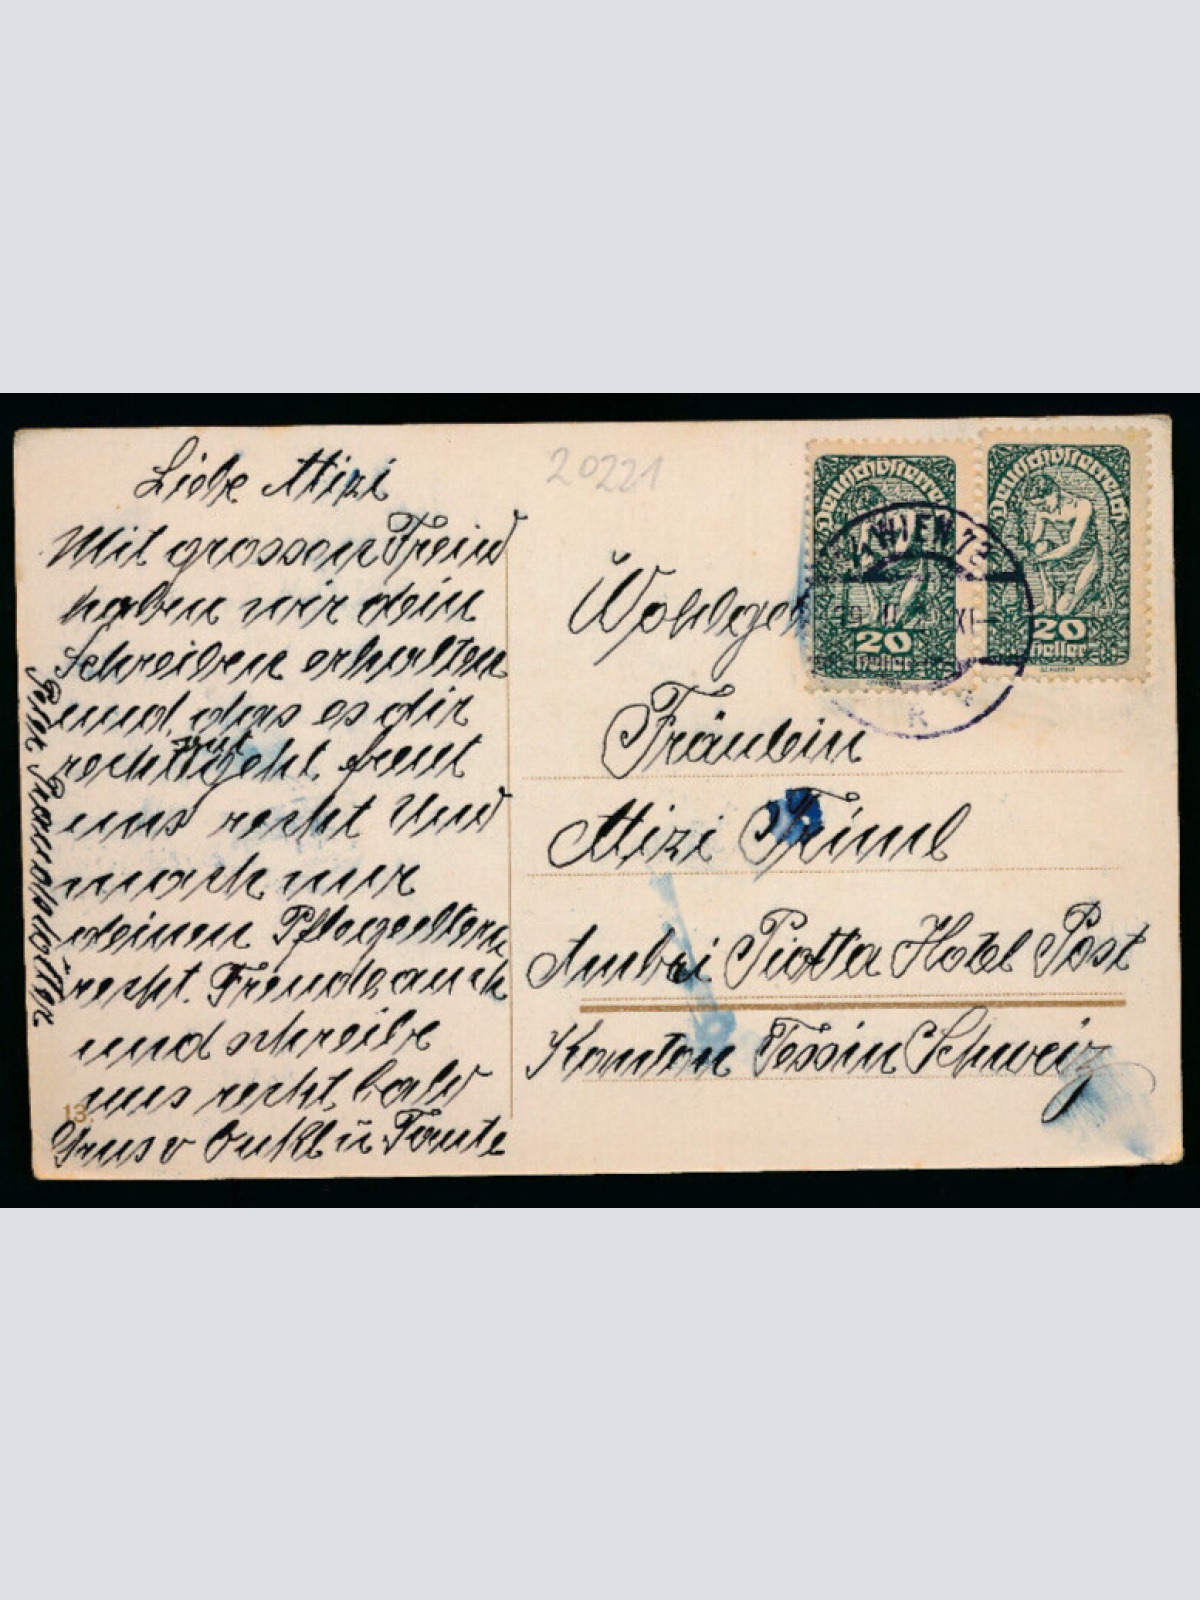 Liebe Mizi
Mit grossen Freud
haben wir dein
Schreiben erhalten
und das es dir
recht gut geht freut
uns recht Und
mach nur
deinen Pflegeeltern
recht Freude auch
und schreibe
uns recht bald
Grus v Onkl u Tante
13.
20221
Wohlgeb
Fräulein
Mizi Triml
Ambri Piotta Hotel Post
Kanton Tessin Schweiz
Deutschösterreich
20
Heller
Deutschösterreich
20
Heller
WIEN 72